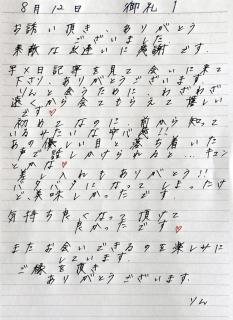 8月12日 御礼1
お誘い頂き、ありがとう
ございました。
素敵な友達いに感謝です。
写メ日記等を見て会いに来て
下さり、ありがとうございます。
りんと会うために、わざわざ
遠くから会てもらえて嬉しい
です♡
初めてなのに、前から知って
いるみたいな安心感!!
あの優しい目と落ち着いた
声で話しかけられると…キュン
とかな♡
差し入れもありがとう!!
バタバタになってしまったけ
ど、美味しかったです。
気持ち良くなって頂けて
良かったです♡
またお会いできるのを楽しみに
しています。
ご縁を頂き
ありがとうございます。
りん